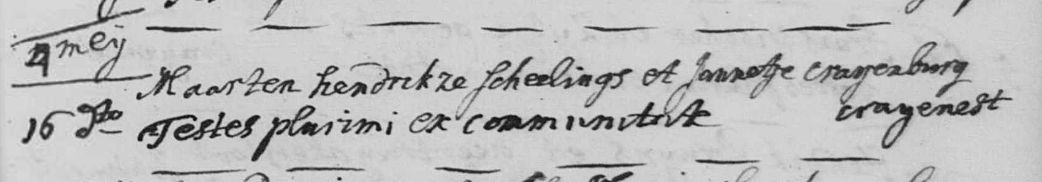 4 meij
Maarten hendrikze scheelings et Jannetje crayenburg
16 dto Testes plurimi ex communitate crayenest